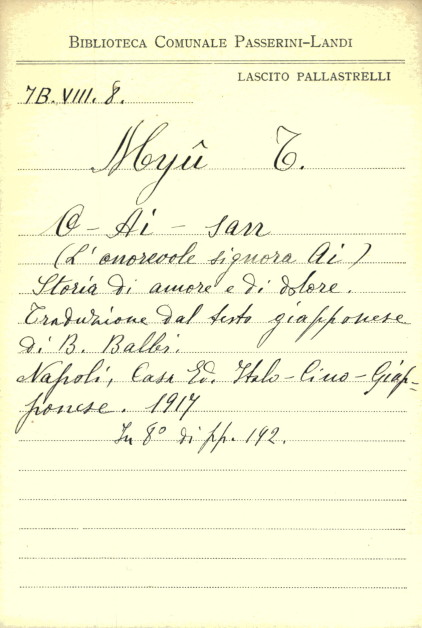 BIBLIOTECA COMUNALE PASSERINI-LANDI
LASCITO PALLASTRELLI
7B. VIII. 8.
Myû T.
O-Ai-san
(L'onorevole signora Ai)
Storia di amore e di dolore.
Traduzione dal testo giapponese
di B. Balbi.
Napoli, Casa Ed. Italo-Cino-Giap-
ponese. 1917
In 8° di pp. 192.